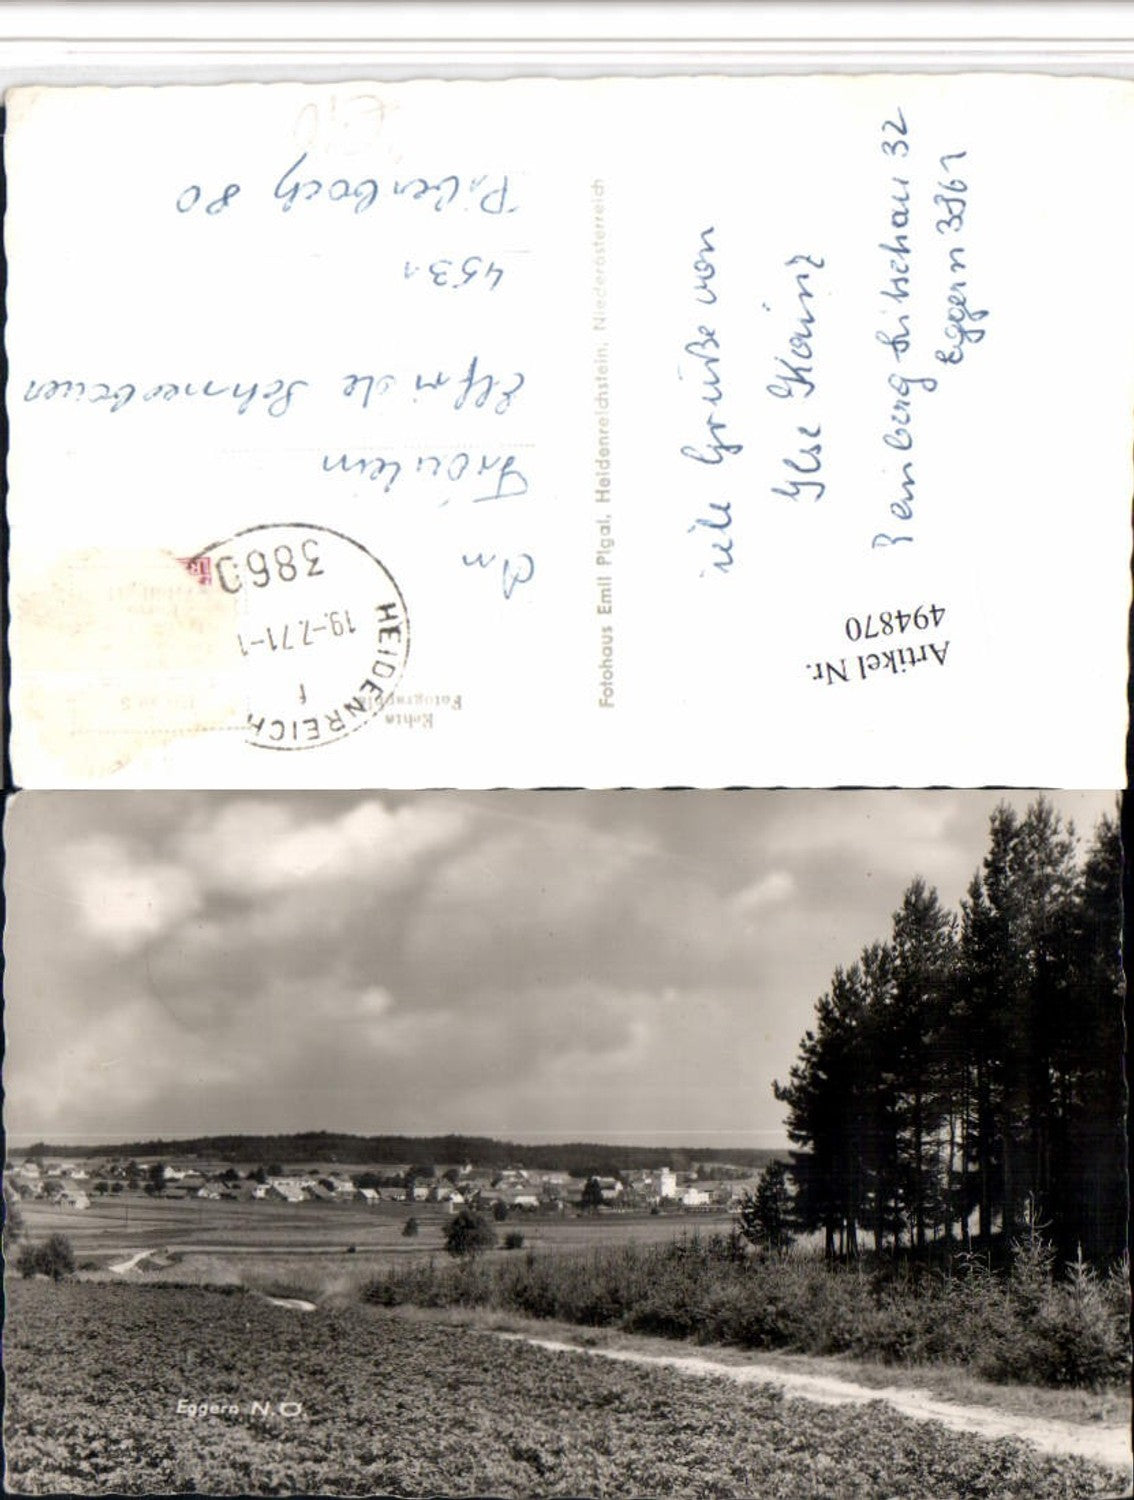 Echte
Fotographie
HEIDENREICH
f
19.-7.71-1
3860
An
Fräulein
Elfriede Schneebauer
4531
Piberbach 80
Fotohaus Emil Plgal, Heidenreichstein, Niederösterreich
viele Grüße von
Ilse Kainz
Reinberg Litschau 32
Eggern 3861
Artikel Nr.
494870
Eggern N.Ö.